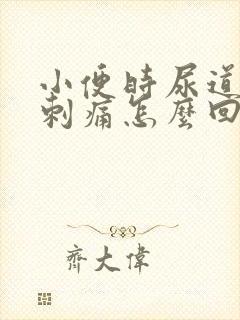 小便時尿道
刺痛怎麼回
齊大偉